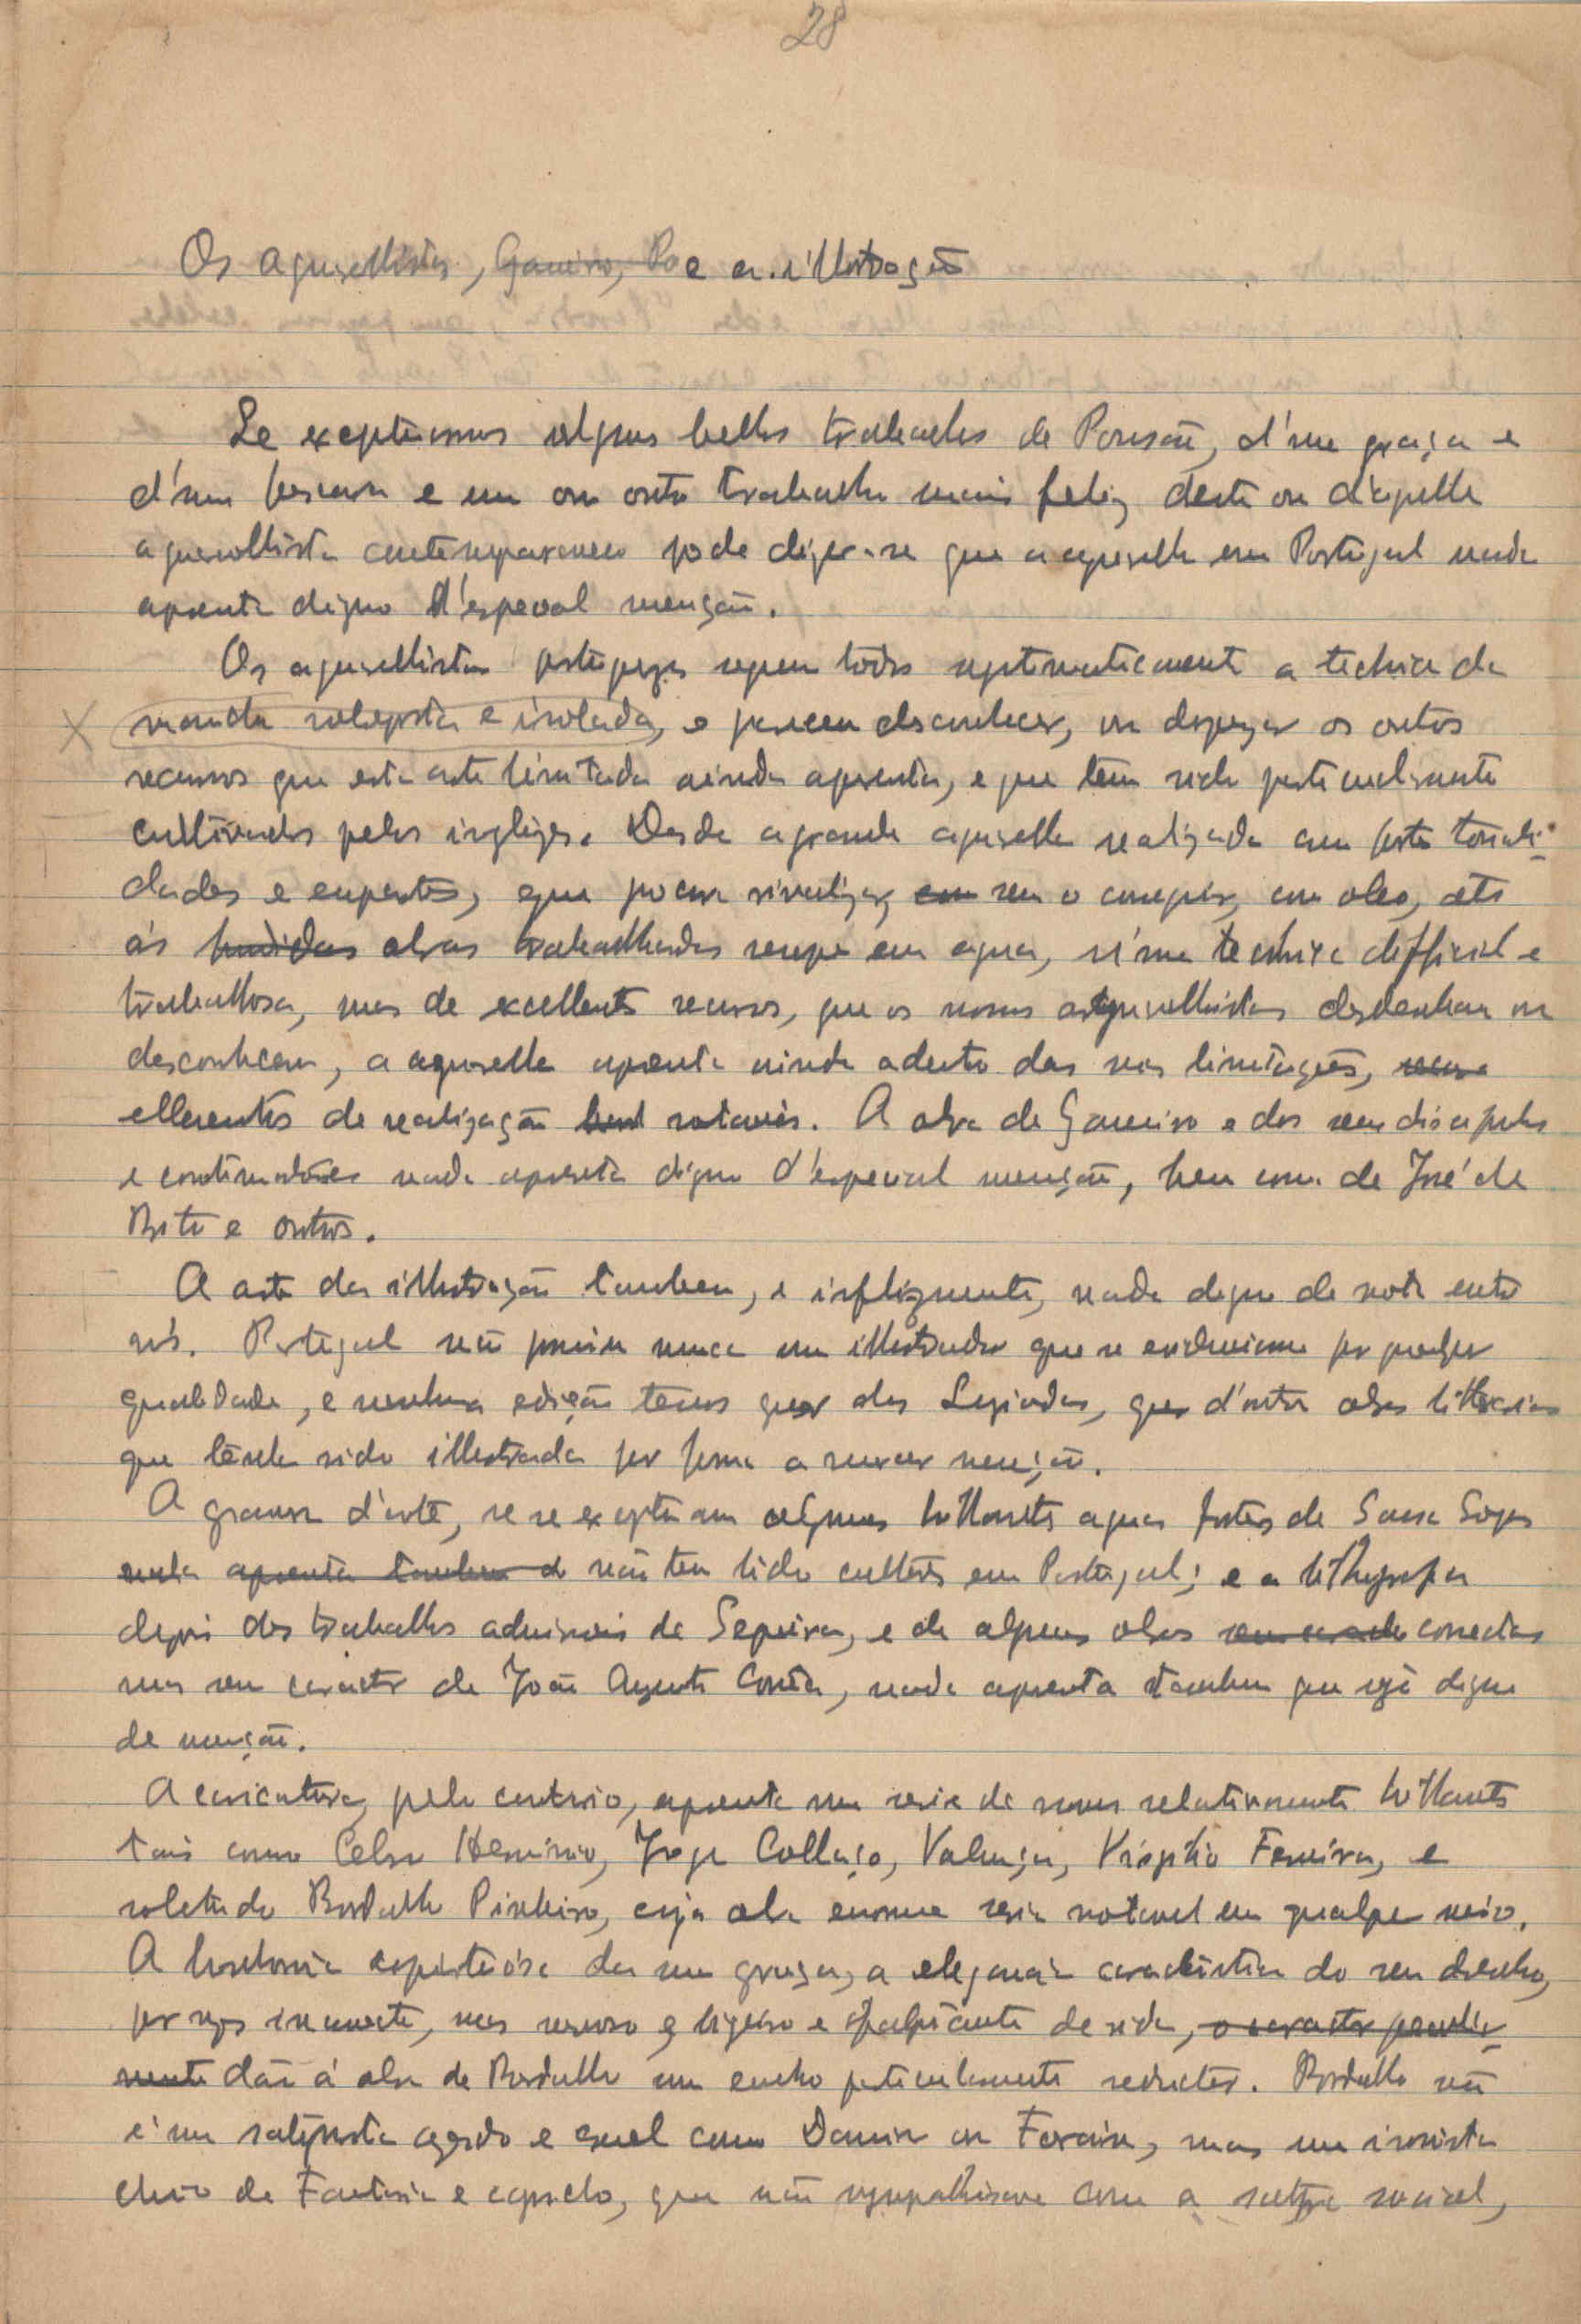 28
Os aguarellistas, Gameiro, e a illustração
Se exceptuarmos alguns bellos trabalhos de Pousão, d'uma graça e
d'uma e um ou outro trabalho mais feliz deste ou d'aquelle
aguarellista contemporaneo pode dizer-se que a aguarella em Portugal nada
apresenta digno d'especial menção.
Os aguarellistas portuguezes seguem todos systematicamente a technica da
mancha sobreposta e isolada, e parecem desconhecer, ou desprezar os outros
recursos que esta arte limitada ainda apresenta, e que têm sido particularmente
cultivados pelos inglezes. Desde a grande aguarella realizada em fortes tonali-
dades e empastes, e que procura rivalizar, com sem o conseguir, com oleo, até
ás obras trabalhadas sempre em agua, n'uma technica difficil e
trabalhosa, mas de excellentes recursos, que os nossos aguarellistas desdenham ou
desconhecem, a aguarella apresenta ainda adentro das suas limitações,
elementos de realização notaveis. A obra de Gameiro e dos seus discipulos
e continuadores nada apresenta digno d'especial menção, bem como de José de
Brito e outros.
A arte da illustração tambem, e infelizmente, nada digno de nota entre
nós. Portugal não possuiu nunca um illustrador que se evidenciasse por qualquer
qualidade, e nenhuma edição temos quer dos Lusiadas, quer d'outra obra litteraria
que tenha sido illustrada por forma a merecer menção.
A gravura d'arte, se se exceptuam algumas brilhantes aguas fortes de Sousa Lopes
nada apresenta tambem d não tem tido cultores em Portugal; e a lithographia
depois dos trabalhos admiraveis de Sequeira, e de algumas obras correctas
mas sem caracter de João Augusto Correia, nada apresenta tambem que seja digno
de menção.
A caricatura, pelo contrario, apresenta uma serie de nomes relativamente brilhantes
tais como Celso Herminio, Jorge Collaço, Valença, Virgilio Ferreira, e
sobretudo Bordallo Pinheiro, cuja obra enorme seria notavel em qualquer meio.
A bonhomia espirituosa da sua graça, a elegancia caracteristica do seu desenho,
por vezes incorrecto, mas nervoso e ligeiro e palpitante de vida, o caracter peculiar-
mente dão á obra de Bordallo um encanto particularmente seductor. Bordallo não
é um satyrista azedo e cruel como Daumier ou Forain, mas um ironista
cheio de Fantasia e capricho, que não sympathisava com a satyra social,